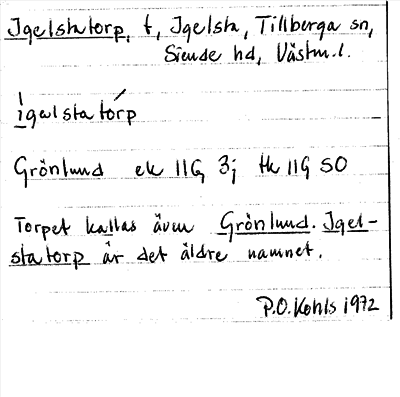 Igelstatorp, t, Igelsta, Tillberga sn,
Siende hd, Västm.l.
ígəlstatórp
Grönlund ek 11G 3j tk 11G SO
Torpet kallas även Grönlund. Igel-
statorp är det äldre namnet.
P.O. Kohls 1972